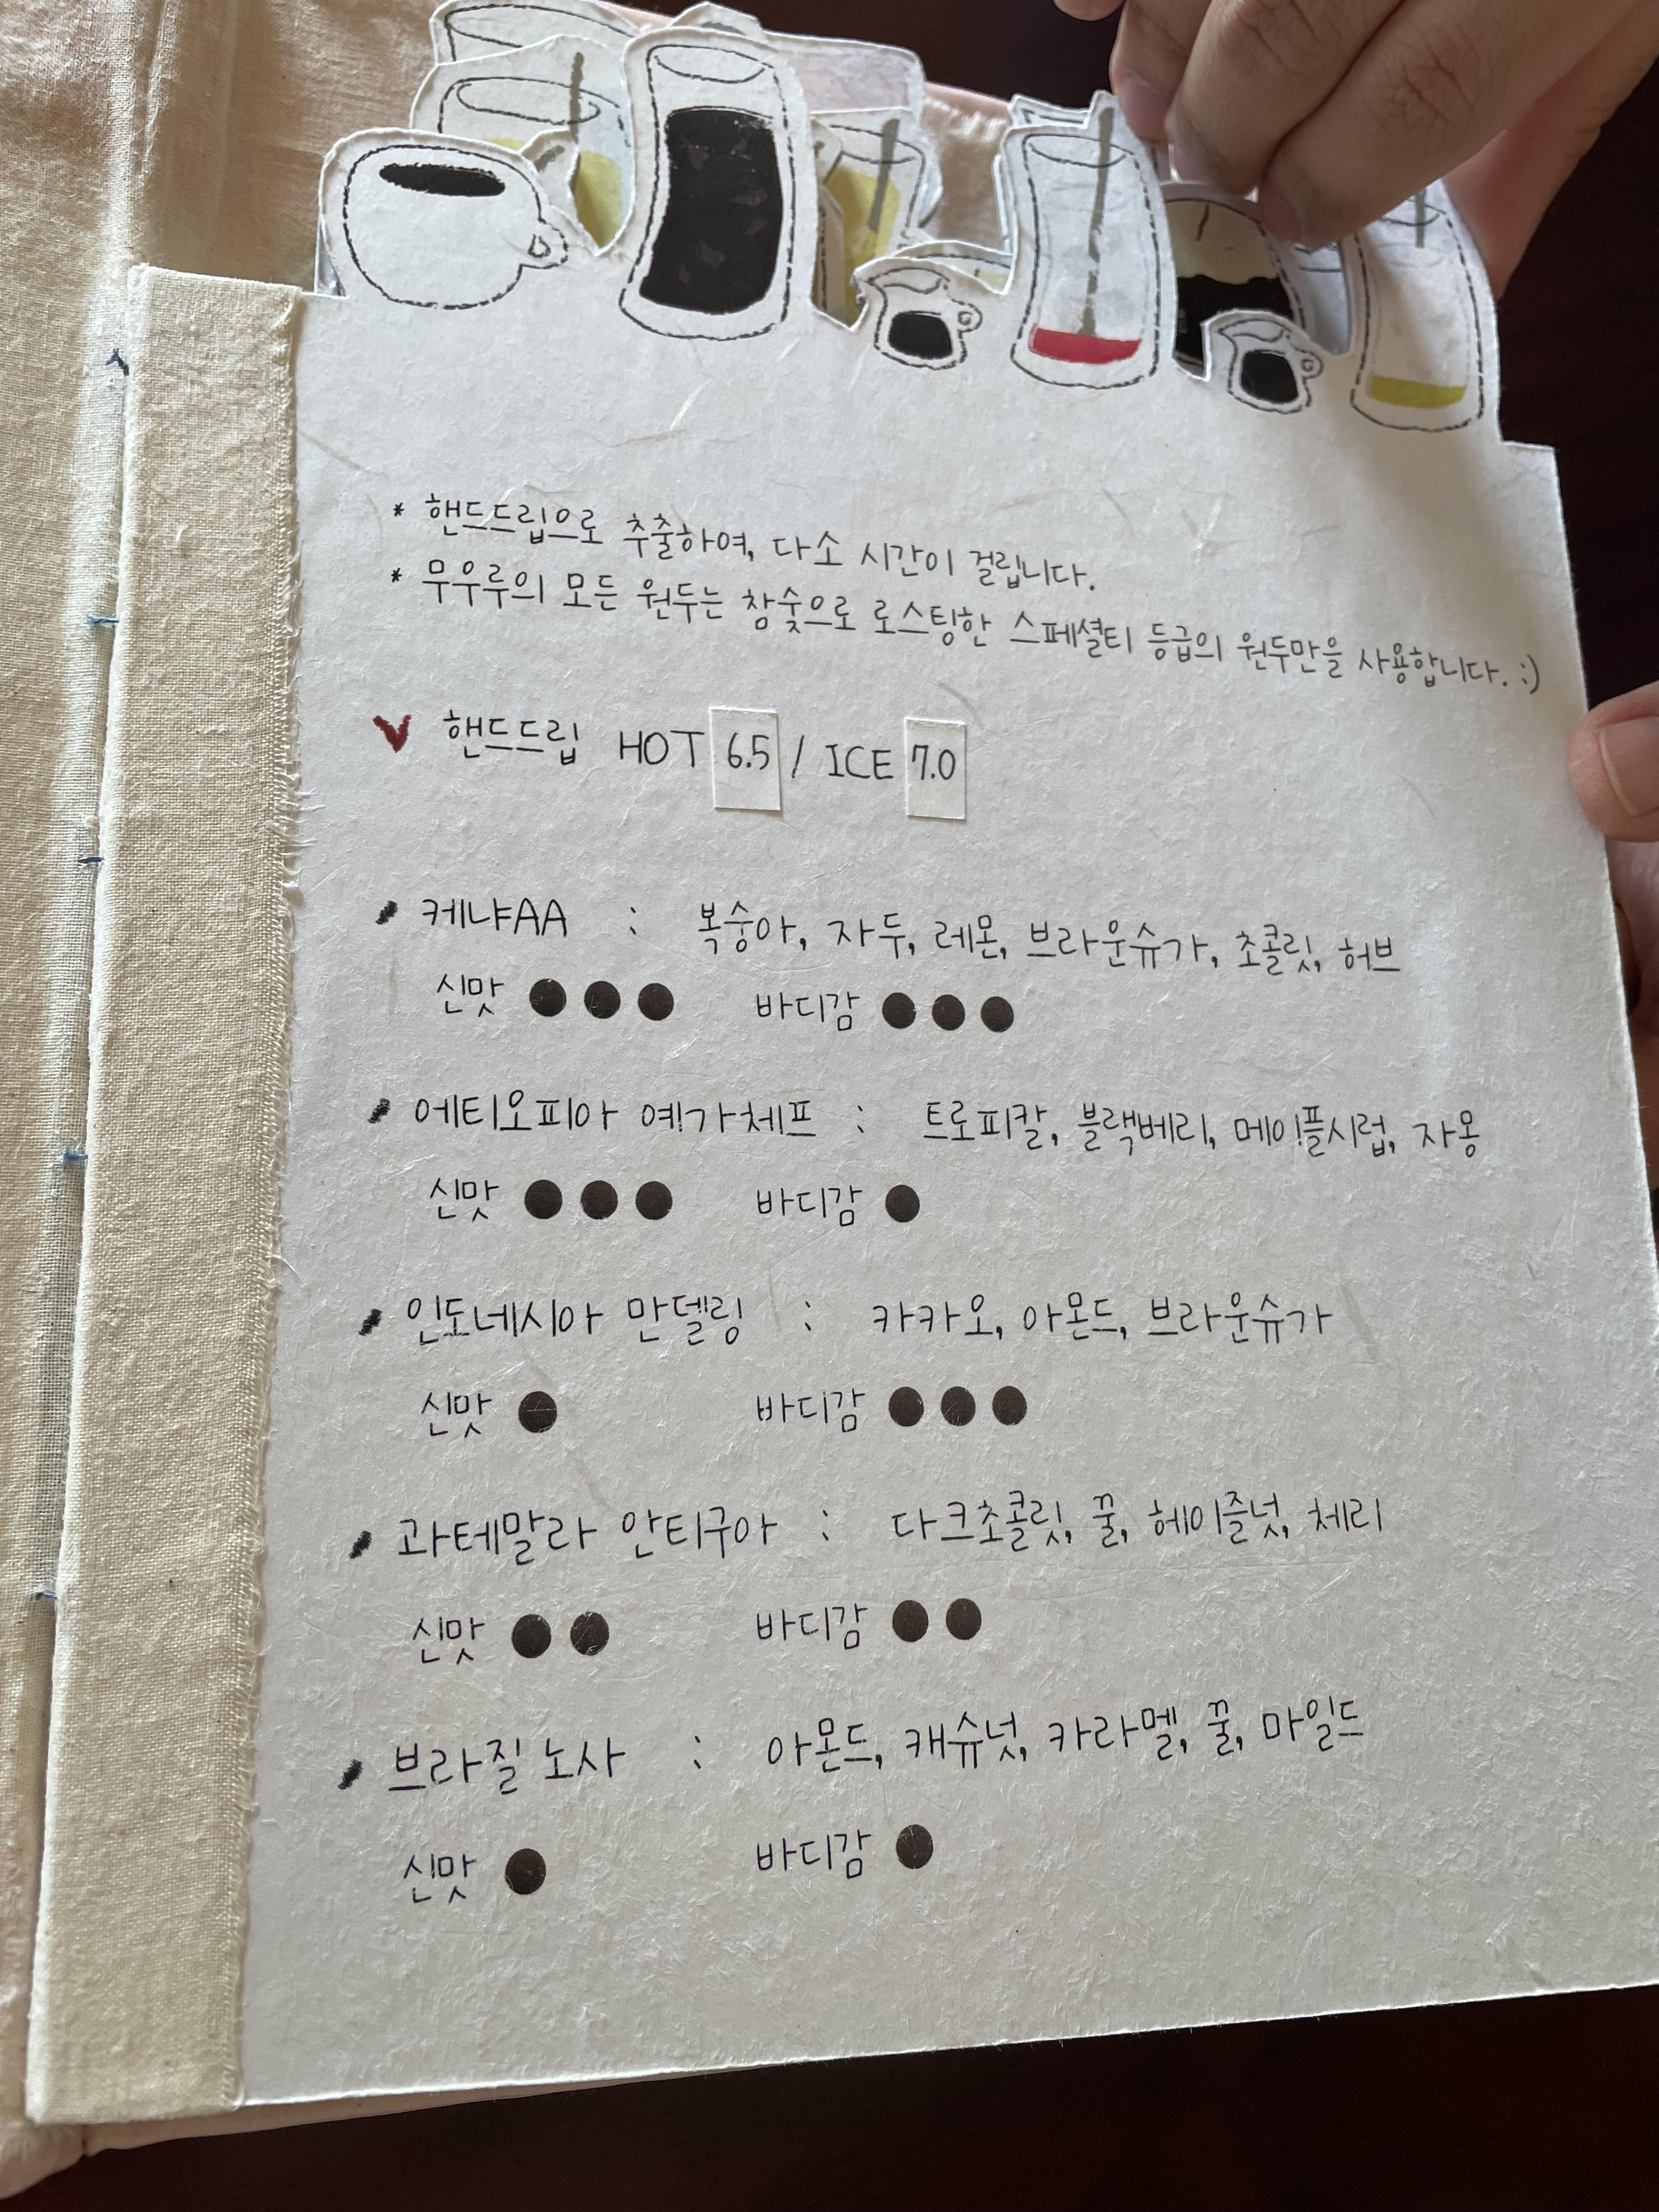 * 핸드드립으로 추출하여, 다소 시간이 걸립니다.
* 무우루의 모든 원두는 참숯으로 로스팅한 스페셜티 등급의 원두만을 사용합니다. :)
V 핸드드립 HOT 6.5 / ICE 7.0
케냐AA : 복숭아, 자두, 레몬, 브라운슈가, 초콜릿, 허브
신맛 ●●● 바디감 ●●●
에티오피아 예가체프 : 트로피칼, 블랙베리, 메이플시럽, 자몽
신맛 ●●● 바디감 ●
인도네시아 만델링 : 카카오, 아몬드, 브라운슈가
신맛 ● 바디감 ●●●
과테말라 안티구아 : 다크초콜릿, 꿀, 헤이즐넛, 체리
신맛 ●● 바디감 ●●
브라질 노사 : 아몬드, 캐슈넛, 카라멜, 꿀, 마일드
신맛 ● 바디감 ●